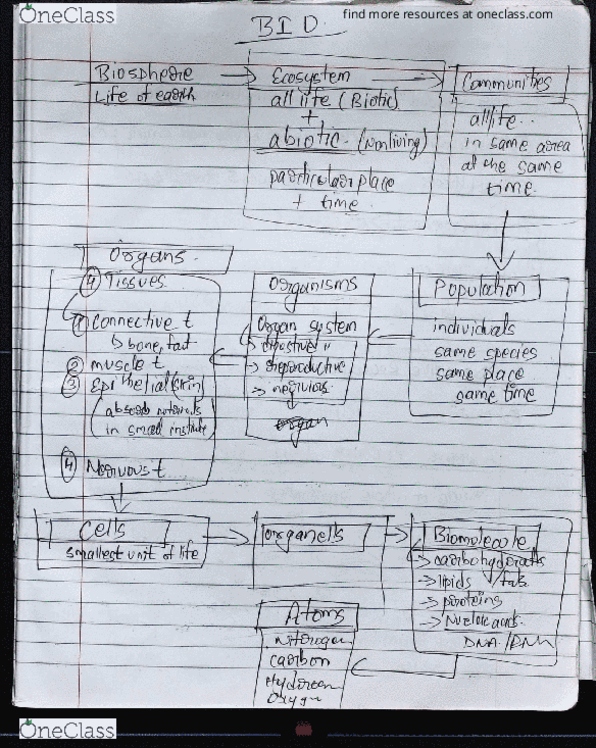 OneClass
find more resources at oneclass.com
BIO
Biosphere
Life of earth
Ecosystem
all life (Biotic)
+
abiotic (Nonliving)
particular place
+ time
Communities
all life
in same area
at the same
time.
Organs
④ Tissues
① connective t
bone, fat
② muscle t
③ Epithelial (skin)
absorb
in small
④ Nervous t
Organisms
Organ system
digestive "
reproductive
nervious
organ
Population
individuals
same species
same place
same time
Cells
smallest unit of life
organells
Biomolecule
carbohydrates
lipids / fats
proteins
Nucleic acids
DNA / RNA
Atoms
Nitrogen
carbon
Hydrogen
Oxygen
OneClass